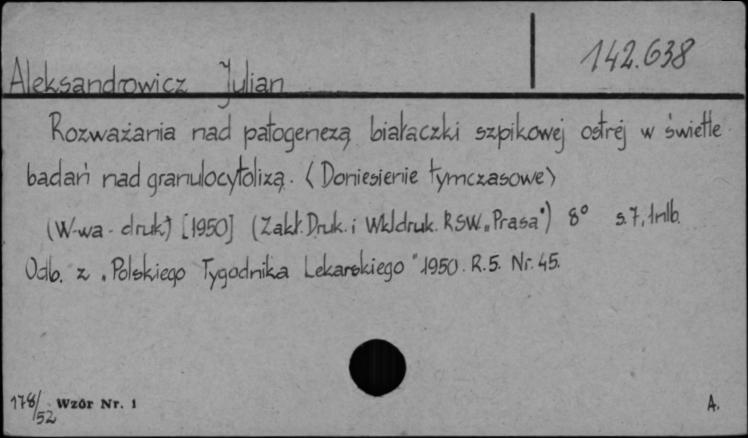 142.638
Aleksandrowicz Julian
Rozważania nad patogenezą białaczki szpikowej ostrej w świetle
badań nad granulocytolizą. (Doniesienie tymczasowe)
(W-wa - druk) [1950] (Zakł. Druk. i Wkldruk. RSW „Prasa") 8° s. 7, 1nlb.
Odb. z „Polskiego Tygodnika Lekarskiego" 1950. R. 5. Nr. 45.
178/52 Wzór Nr. 1 A.